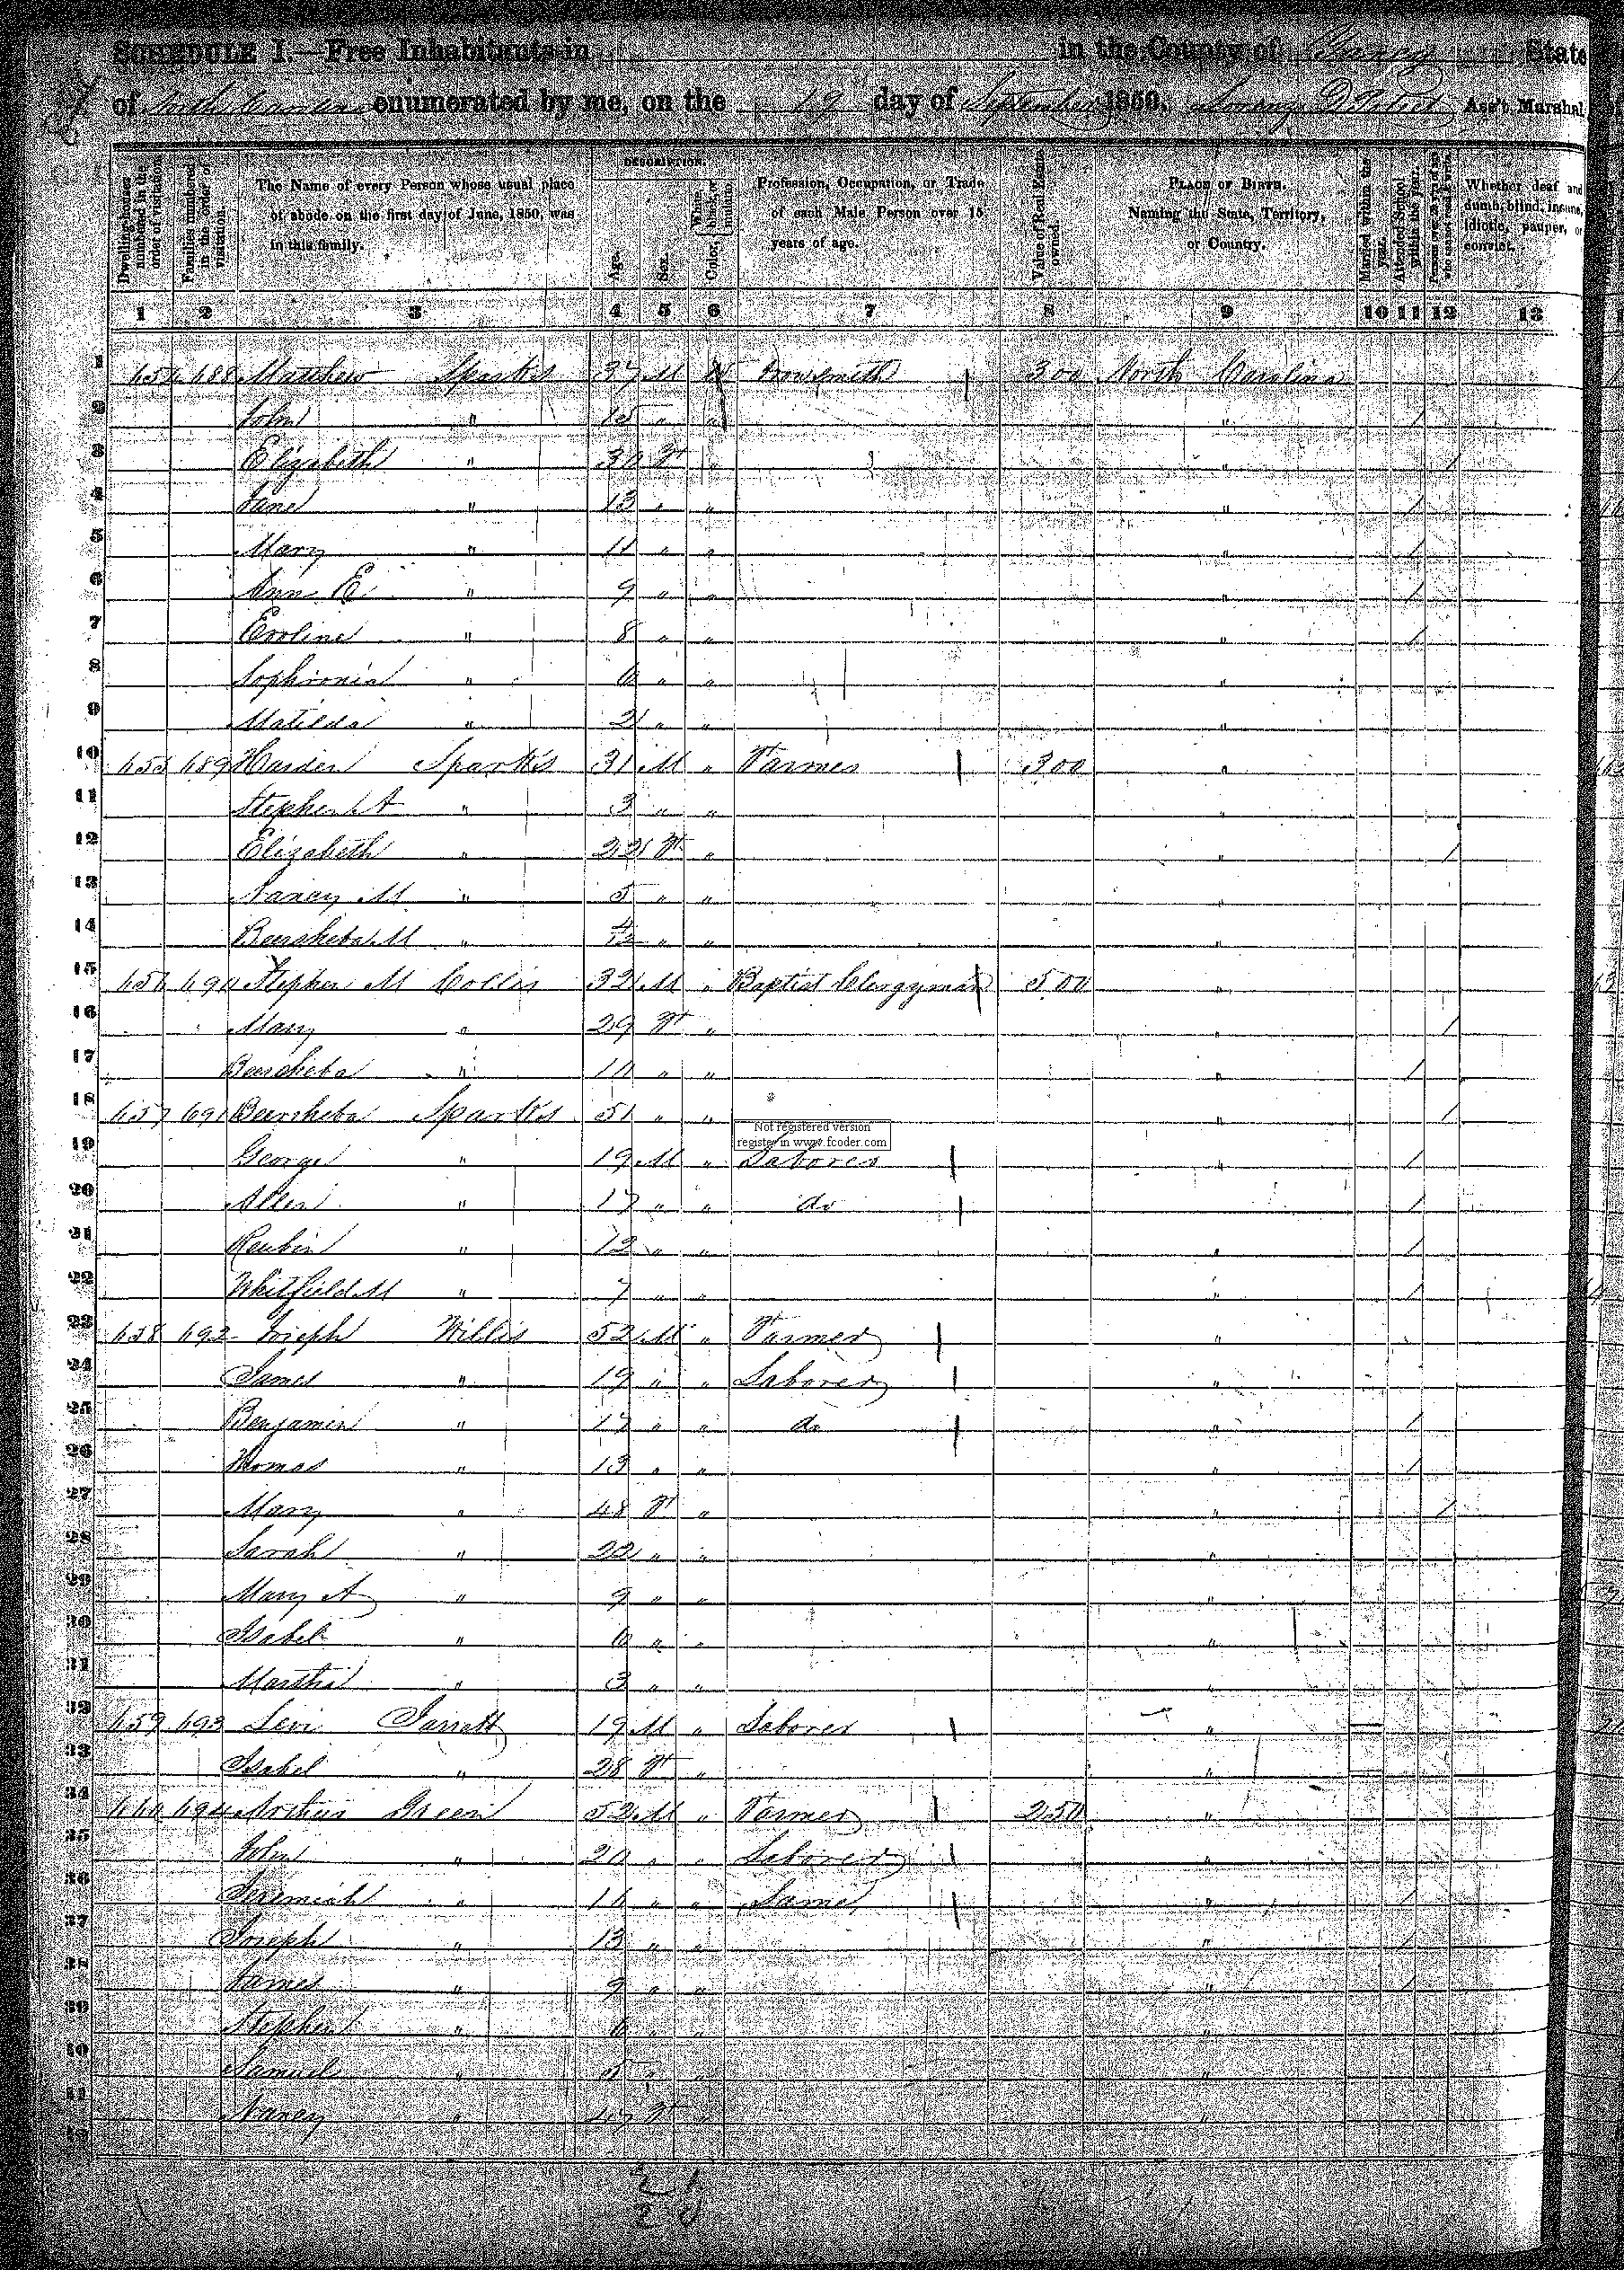 SCHEDULE I.—Free Inhabitants in in the County of Yancy State
of North Carolina enumerated by me, on the 19 day of September 1850. Ass't Marshal
DESCRIPTION.
Dwelling-houses numbered in the order of visitation.
Families numbered in the order of visitation.
The Name of every Person whose usual place of abode on the first day of June, 1850, was in this family.
Age.
Sex.
Color, White, black, or mulatto.
Profession, Occupation, or Trade of each Male Person over 15 years of age.
Value of Real Estate owned.
PLACE OF BIRTH. Naming the State, Territory, or Country.
Married within the year.
Attended School within the year.
Persons over 20 y'rs of age who cannot read & write.
Whether deaf and dumb, blind, insane, idiotic, pauper, or convict.
1 2 3 4 5 6 7 8 9 10 11 12 13
1 654 688 Matthew Sparks 37 M W 300 North Carolina
2 John " 15 " " " /
3 Elizabeth " 30 F " " /
4 Jane " 13 " " " /
5 Mary " 11 " " " /
6 Ann E " 9 " " " /
7 Evoline " 8 " " " /
8 Sophronia " 6 " " "
9 Matilda " 2 " " "
10 655 689 Harden Sparks 31 M " Farmer 300 "
11 Stephen A " 3 " "
12 Elizabeth " 22 F " " /
13 Nancy M " 5 " " "
14 Beersheba M " 4/12 " " "
15 656 690 Stephen M Collis 32 M " Baptist Clergyman 500 "
16 Mary " 29 F " " /
17 Beersheba " 10 " " " /
18 657 691 Beersheba Sparks 51 " " " /
Not registered version
register in www.fcoder.com
19 George " 19 M " Laborer " /
20 Allen " 17 " " do " /
21 Reubin " 12 " " " /
22 Whitfield M " 7 " " " /
23 658 692 Joseph Willis 52 M " Farmer "
24 James " 19 " " Laborer "
25 Benjamin " 17 " " do " /
26 Thomas " 13 " " " /
27 Mary " 48 F " " /
28 Sarah " 22 " " "
29 Mary A " 9 " " "
30 Isabel " 6 " " "
31 Martha " 3 " " "
32 659 693 Levi Jarrett 19 M " Laborer "
33 Isabel " 28 F " "
34 660 694 Arthur Green 52 M " Farmer 250 "
35 John " 20 " " Laborer "
36 Jeremiah " 16 " " Same " /
37 Joseph " 13 " " " /
38 James " 9 " " " /
39 Stephen " 6 " " "
40 Samuel " 5 " " "
41 Nancy " 47 F " "